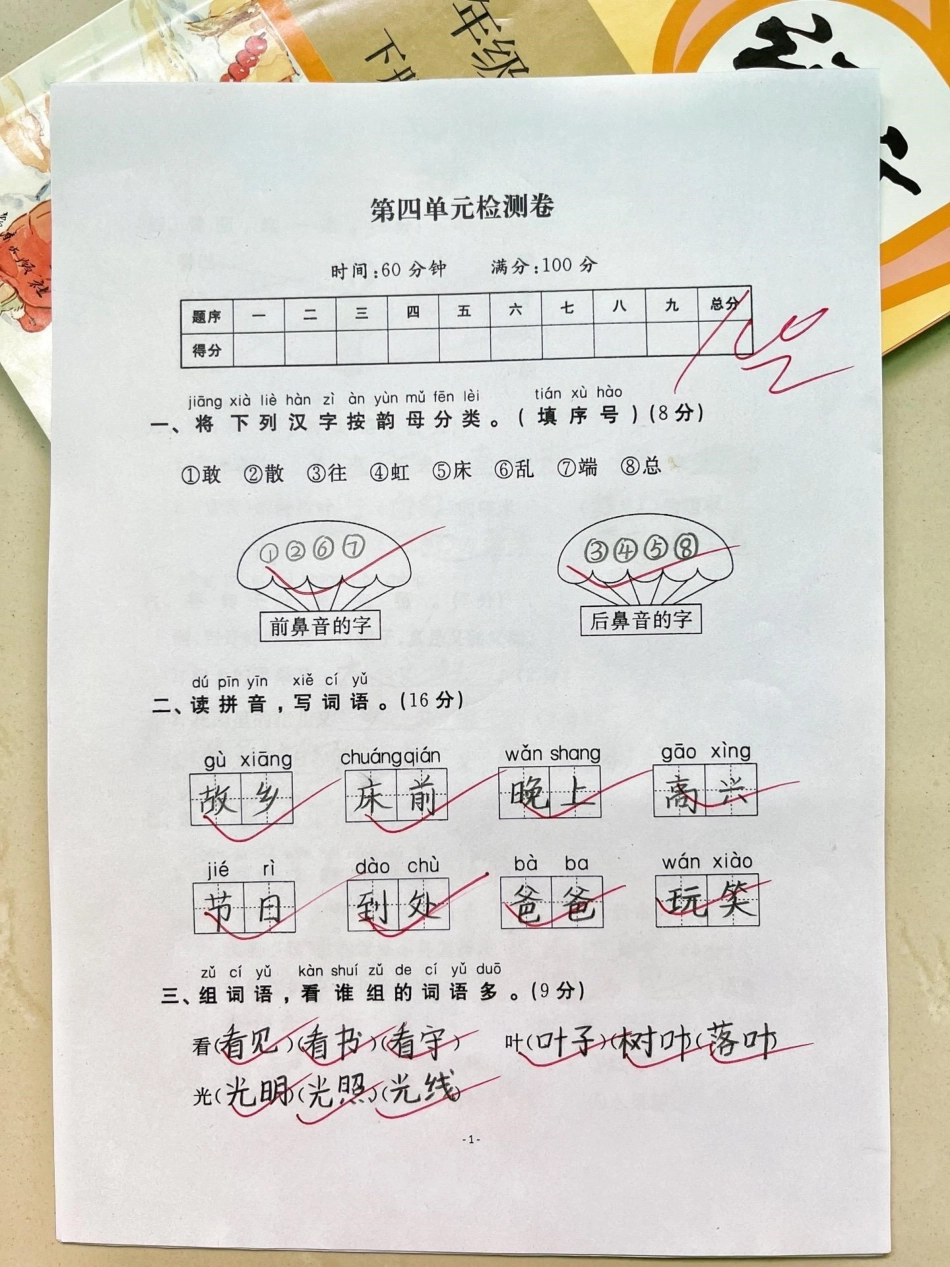 年级
下册
第四单元检测卷
时间:60分钟 满分:100分
题序 一 二 三 四 五 六 七 八 九 总分
得分
100
jiāng xià liè hàn zì àn yùn mǔ fēn lèi tián xù hào
一、将下列汉字按韵母分类。(填序号)(8分)
①敢 ②散 ③往 ④虹 ⑤床 ⑥乱 ⑦端 ⑧总
①②⑥⑦ ③④⑤⑧
前鼻音的字 后鼻音的字
dú pīn yīn xiě cí yǔ
二、读拼音,写词语。(16分)
gù xiāng chuáng qián wǎn shang gāo xìng
故乡 床前 晚上 高兴
jié rì dào chù bà ba wán xiào
节日 到处 爸爸 玩笑
zǔ cí yǔ kàn shuí zǔ de cí yǔ duō
三、组词语,看谁组的词语多。(9分)
看(看见)(看书)(看守) 叶(叶子)(树叶)(落叶)
光(光明)(光照)(光线)
-1-